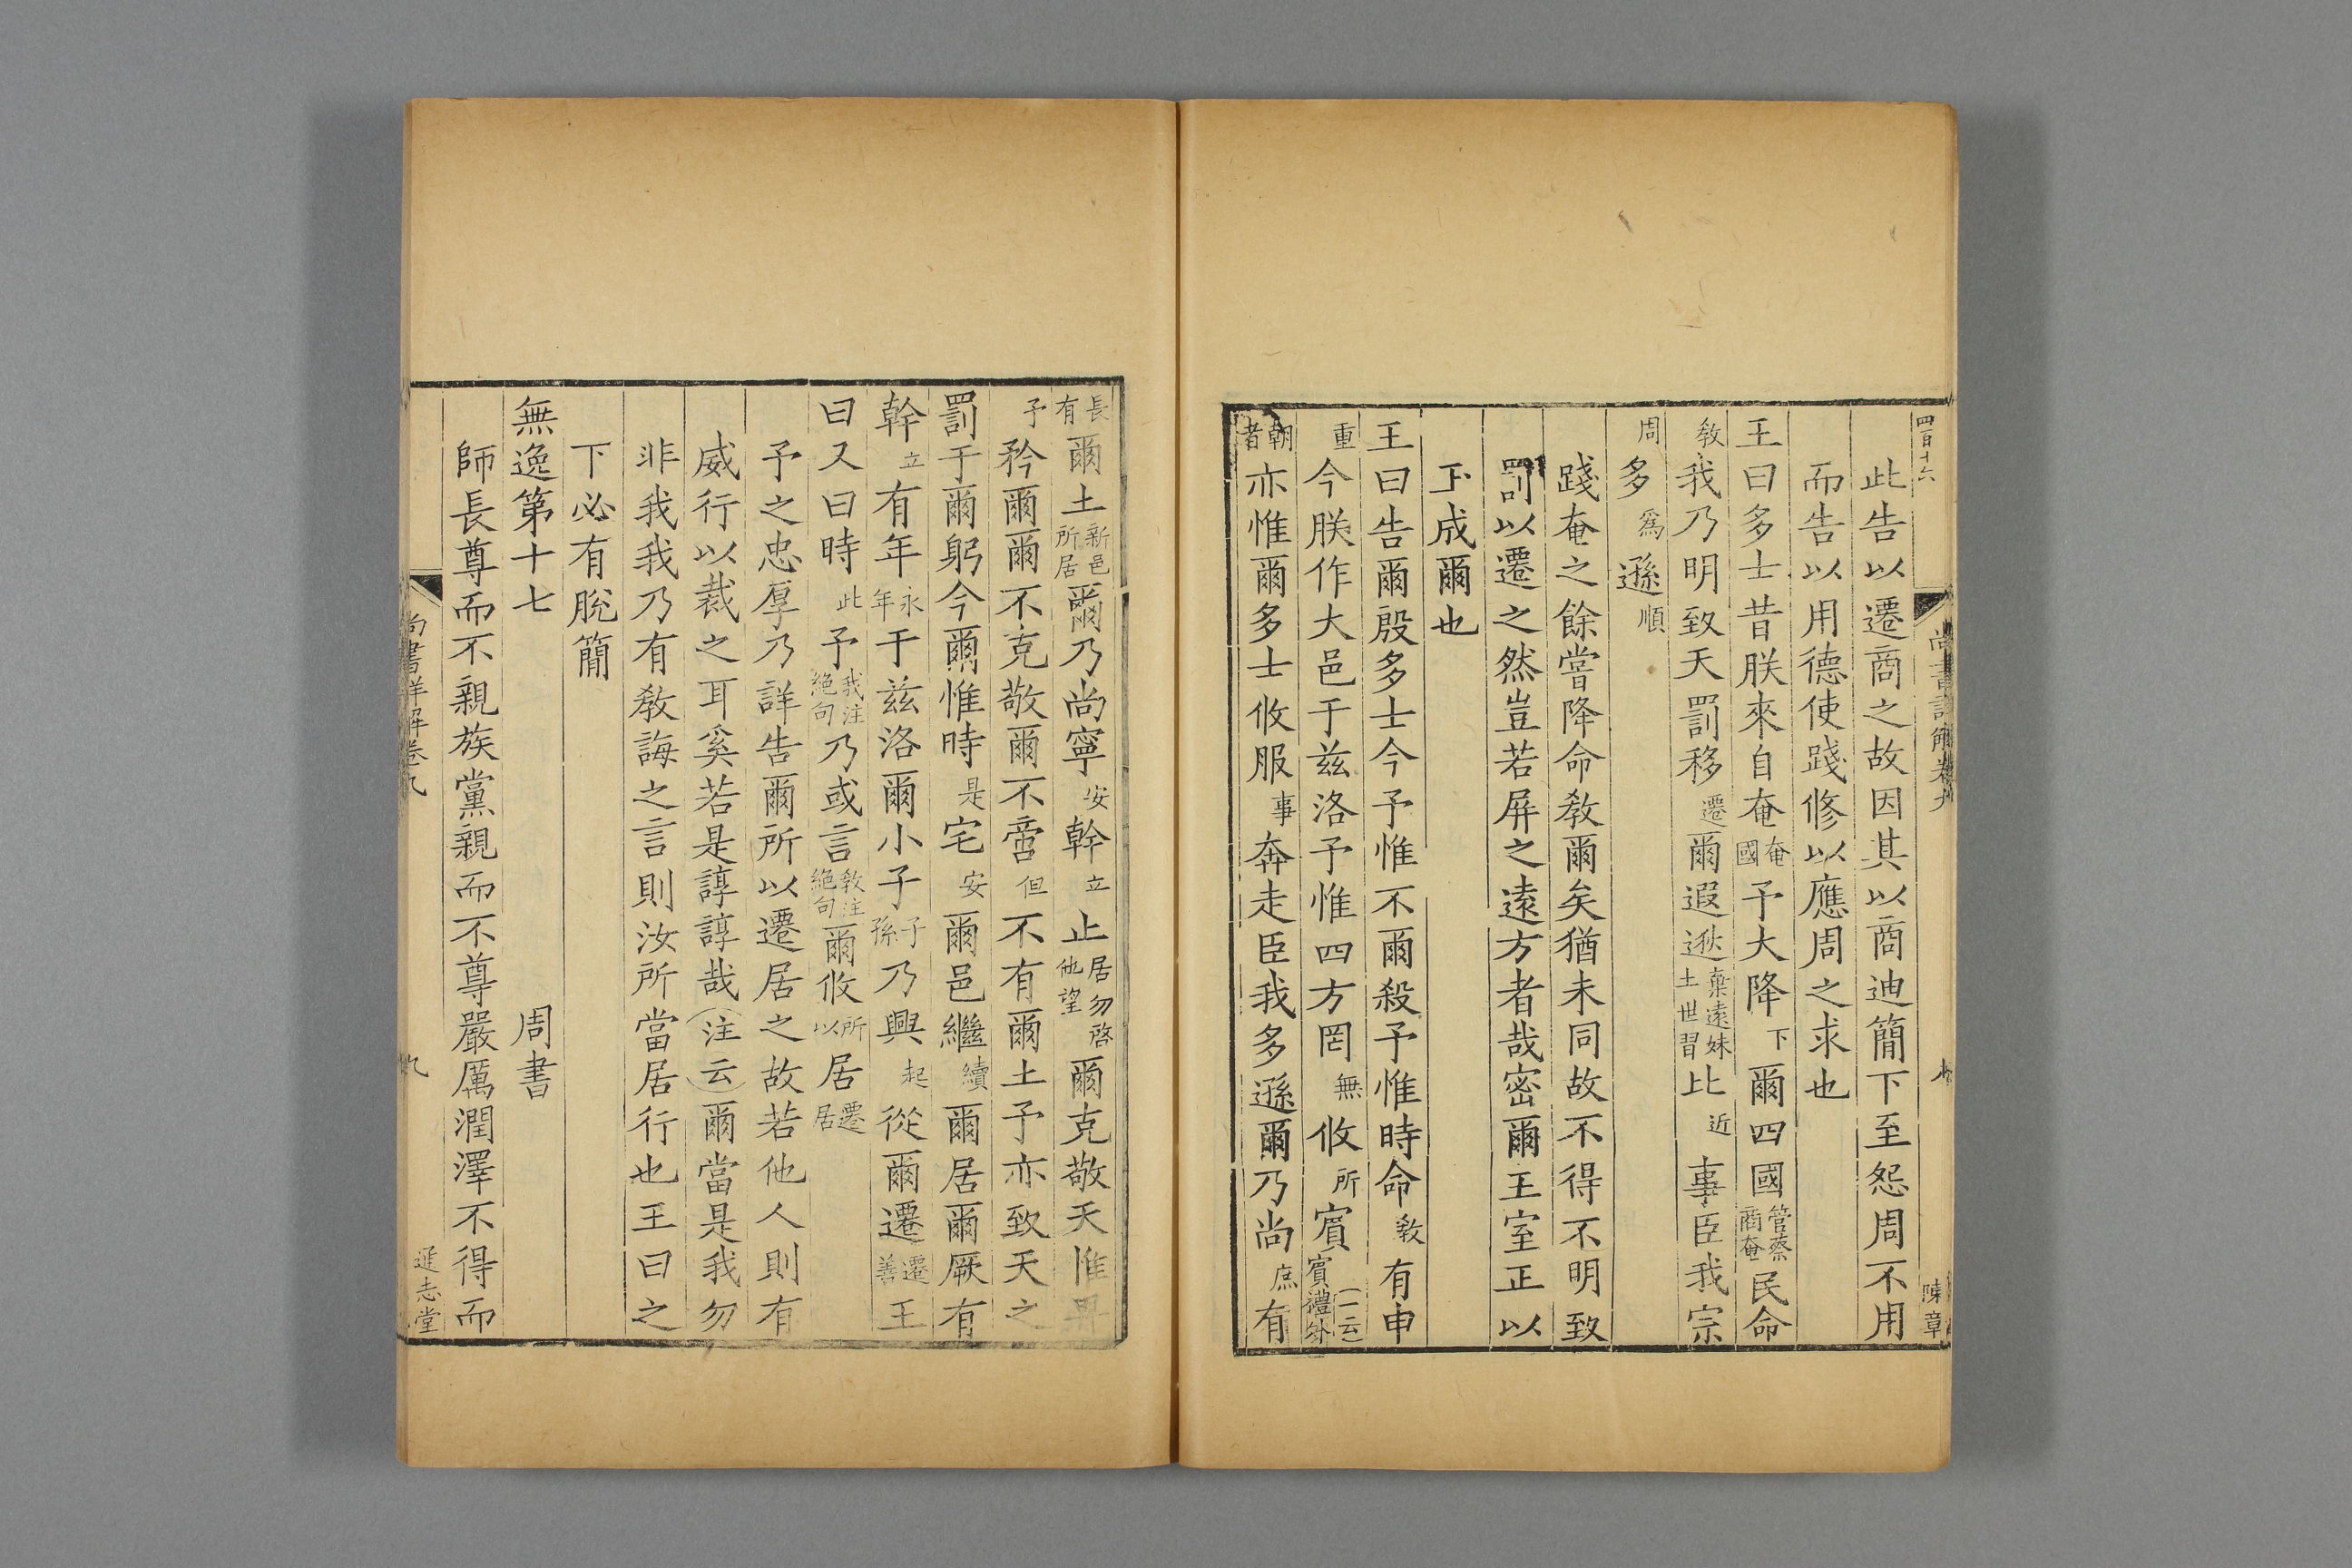 四百十六
尚書詳解卷九
九
陳章
此告以遷商之故因其以商迪簡下至怨周不用
而告以用德使踐修以應周之求也
王曰多士昔朕來自奄奄國予大降下爾四國管蔡商奄民命
敎我乃明致天罰移遷爾遐逖棄遠妹土世習比近事臣我宗
周多爲遜順
踐奄之餘嘗降命敎爾矣猶未同故不得不明致
罰以遷之然豈若屏之遠方者哉密爾王室正以
玉成爾也
王曰告爾殷多士今予惟不爾殺予惟時命敎有申
重今朕作大邑于茲洛予惟四方罔無攸所賓(一云)賓禮外
朝者亦惟爾多士攸服事奔走臣我多遜爾乃尚庶有
長有爾土新邑所居爾乃尚寧安幹立止居勿啓他望爾克敬天惟畀
予矜爾爾不克敬爾不啻但不有爾土予亦致天之
罰于爾躬今爾惟時是宅安爾邑繼續爾居爾厥有
幹立有年永年于茲洛爾小子子孫乃興起從爾遷遷善王
曰又曰時此予我注絕句乃或言敎注絕句爾攸所以居遷居
予之忠厚乃詳告爾所以遷居之故若他人則有
威行以裁之耳奚若是諄諄哉(注云)爾當是我勿
非我我乃有敎誨之言則汝所當居行也王曰之
下必有脫簡
無逸第十七 周書
師長尊而不親族黨親而不尊嚴厲潤澤不得而
尚書詳解卷九
九
遜志堂